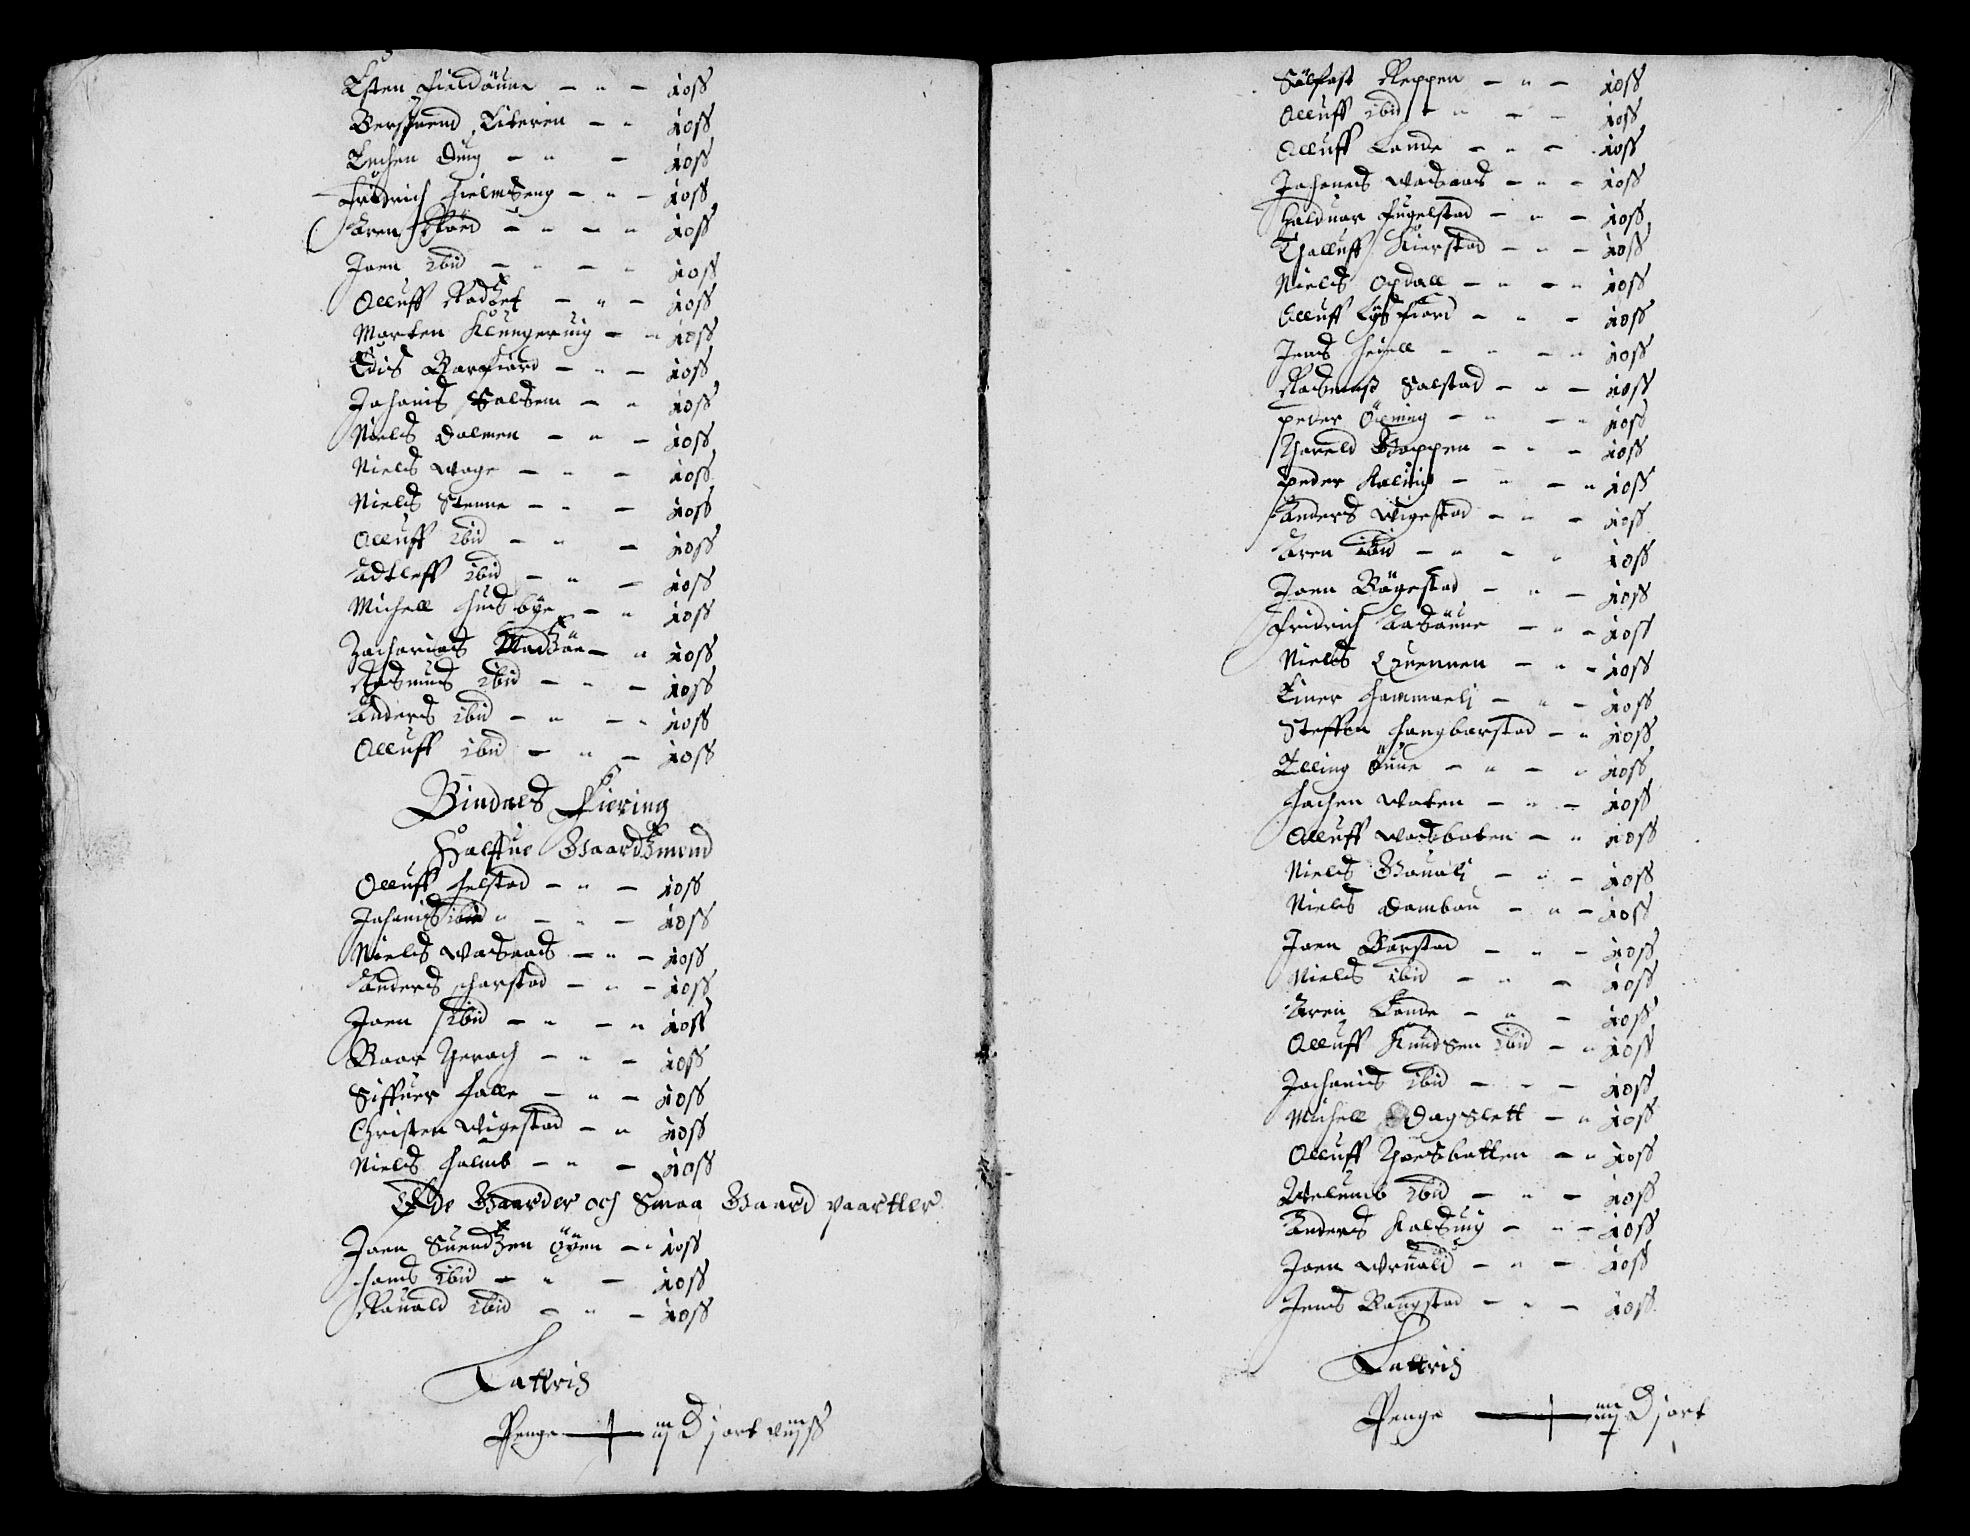 Esten Fieldöune – " – 10 ß
Berßuend Literen – " 10 ß
Lochen Duig – " – 10 ß
Fridrich Hielmseng – " – 10 ß
Aren Skored – " – " 10 ß
Joen Ibid – " – " 10 ß
Olluff Rødzet – " – 10 ß
Morten Klungeruig – " 10 ß
Edis Barfiord – " – 10 ß
Johanis Salsem – " 10 ß
Niels Dalmen – " – 10 ß
Niels Wage – " – 10 ß
Niels Stenne – " – 10 ß
Olluff Ibid – " – 10 ß
Adtleff Ibid – " – 10 ß
Michell Husbye – " 10 ß
Zacharias Madzöe – " 10 ß
Rasmus Ibid – " – 10 ß
Anders Ibid – " – " 10 ß
Olluff Ibid – " – 10 ß
Bindals Fiering
Halffue Gaardzmend
Olluff Helstad – " – 10 ß
Johanis Ibid " – " – 10 ß
Niels Wasaas – " – 10 ß
Anders Harstad – " – 10 ß
Joen Ibid – " – " 10 ß
Baar Terach – " – 10 ß
Siffuer Halle – " – 10 ß
Christen Wigestad – " 10 ß
Niels Holmb – " – 10 ß
Øde Gaarder och Smaa Gaard paartter
Joen Suendzen Öyen – " 10 ß
Hans Ibid – " – 10 ß
Rauald Ibid – " – 10 ß
Latteris
Penge
Sölfast Reppen – " – 10 ß
Olluff Ibid – " – – 10 ß
Olluff Lande – " – 10 ß
Johanis Wasaas – " – 10 ß
Halduor Fugelstad – " – 10 ß
Thalluff Kierstad – " – 10 ß
Niels Opdall – " – " 10 ß
Olluff Lysfiord – " – 10 ß
Jens Heiell – " – " 10 ß
Rasmuß Salstad – " – 10 ß
Peder Öxning – " – " 10 ß
Thareld Gappen – " – 10 ß
Peder Kaluig – " – " 10 ß
Anders Wigestad – " – 10 ß
Aren Ibid – " – " 10 ß
Joen Bögestad – " – 10 ß
Fridrich Aasöune – " – 10 ß
Niels Quennen – " – 10 ß
Einer Hammeli – " – 10 ß
Steffen Hangbarstad – " 10 ß
Elling Öune – " – " 10 ß
Hachen Waten – " – 10 ß
Olluff Wasbaten – " 10 ß
Niels Gauali – " – 10 ß
Niels Dambou – " – 10 ß
Joen Barstad – " – 10 ß
Niels Ibid – " – 10 ß
Aren Lande – " – 10 ß
Olluff Knudsen Ibid – " 10 ß
Johanis Ibid – " – 10 ß
Michell Dagslett – " 10 ß
Olluff Thorsbatten – " 10 ß
Welumb Ibid – " – 10 ß
Anders Kalsuig – " – 10 ß
Joen Wruald – " – 10 ß
Jens Bangstad – " – 10 ß
Latteris
Penge